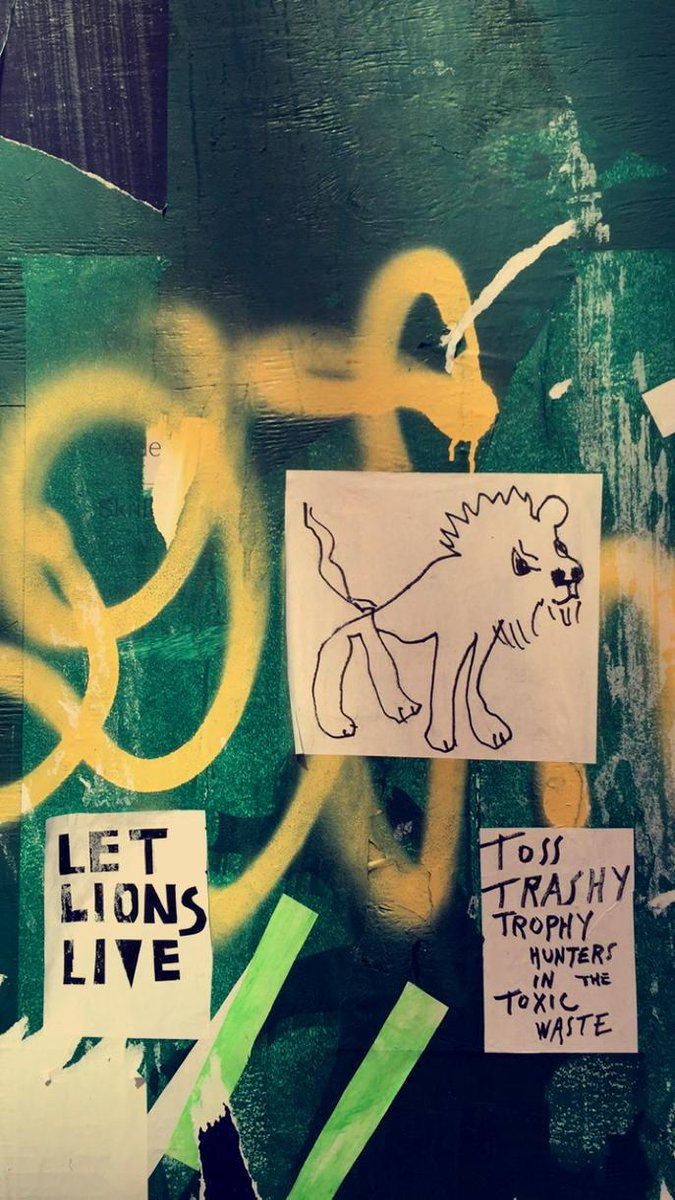 LET
LIONS
LIVE
TOSS
TRASHY
TROPHY
HUNTERS
IN THE
TOXIC
WASTE